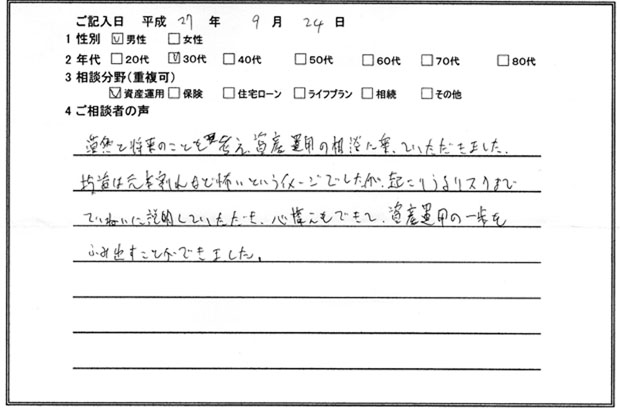 ご記入日 平成 27 年 9 月 24 日
1 性別 ☑男性 □女性
2 年代 □20代 ☑30代 □40代 □50代 □60代 □70代 □80代
3 相談分野(重複可)
☑資産運用 □保険 □住宅ローン □ライフプラン □相続 □その他
4 ご相談者の声
漠然と将来のことを考え、資産運用の相談に乗っていただきました。
投資は元本割れなど怖いというイメージでしたが、起こりうるリスクまで
ていねいに説明していただき、心構えもできて、資産運用の一歩を
ふみ出すことができました。